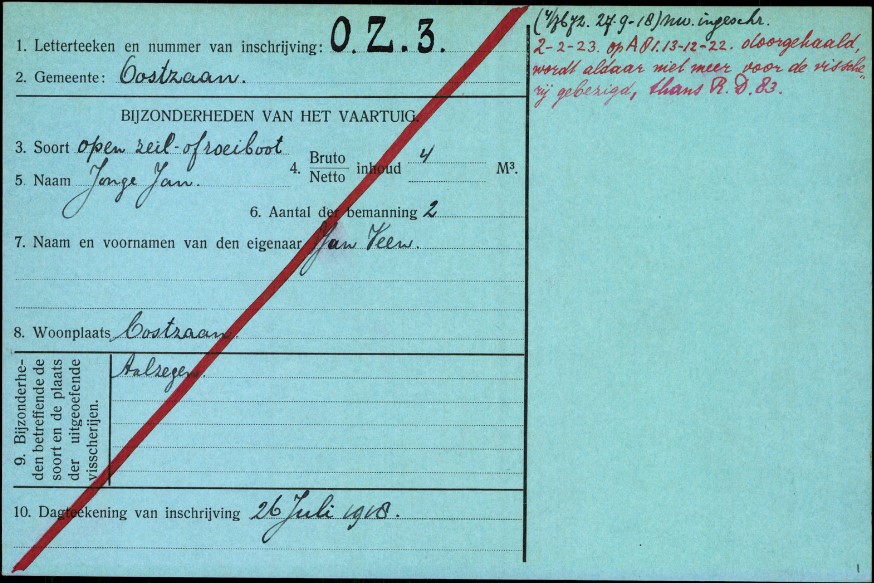 1. Letterteeken en nummer van inschrijving: O.Z.3.
2. Gemeente: Oostzaan.
BIJZONDERHEDEN VAN HET VAARTUIG.
3. Soort open zeil- of roeiboot
4. Bruto / Netto inhoud 4 M³.
5. Naam Jonge Jan.
6. Aantal der bemanning 2
7. Naam en voornamen van den eigenaar Jan Veen.
8. Woonplaats Oostzaan.
9. Bijzonderhe-
den betreffende de
soort en de plaats
der uitgeoefende
visscherijen.
Aalzegen.
10. Dagteekening van inschrijving 26 Juli 1918.
27-9-18) nw. ingeschr.
2-2-23. op A Pl. 13-12-22. doorgehaald,
wordt aldaar niet meer voor de vissche-
rij gebezigd, thans R.D. 83.